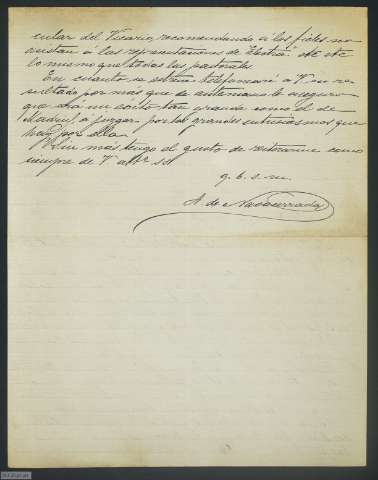 cular del Vicario, recomendando á los fieles no
asistan á las representaciones de "Electra" etc etc
lo mismo que todas las pastorales.
En cuanto se estrene telefonearé á V. su re-
sultado por más que de antemano le aseguro
que será un éxito tan grande como el de
Madrid, á juzgar por los grandes entusiasmos que
hay por ella.
Sin más tengo el gusto de reiterarme como
siempre de V. affº. s.s.
q. b. s. m.
A. de Navacerrada